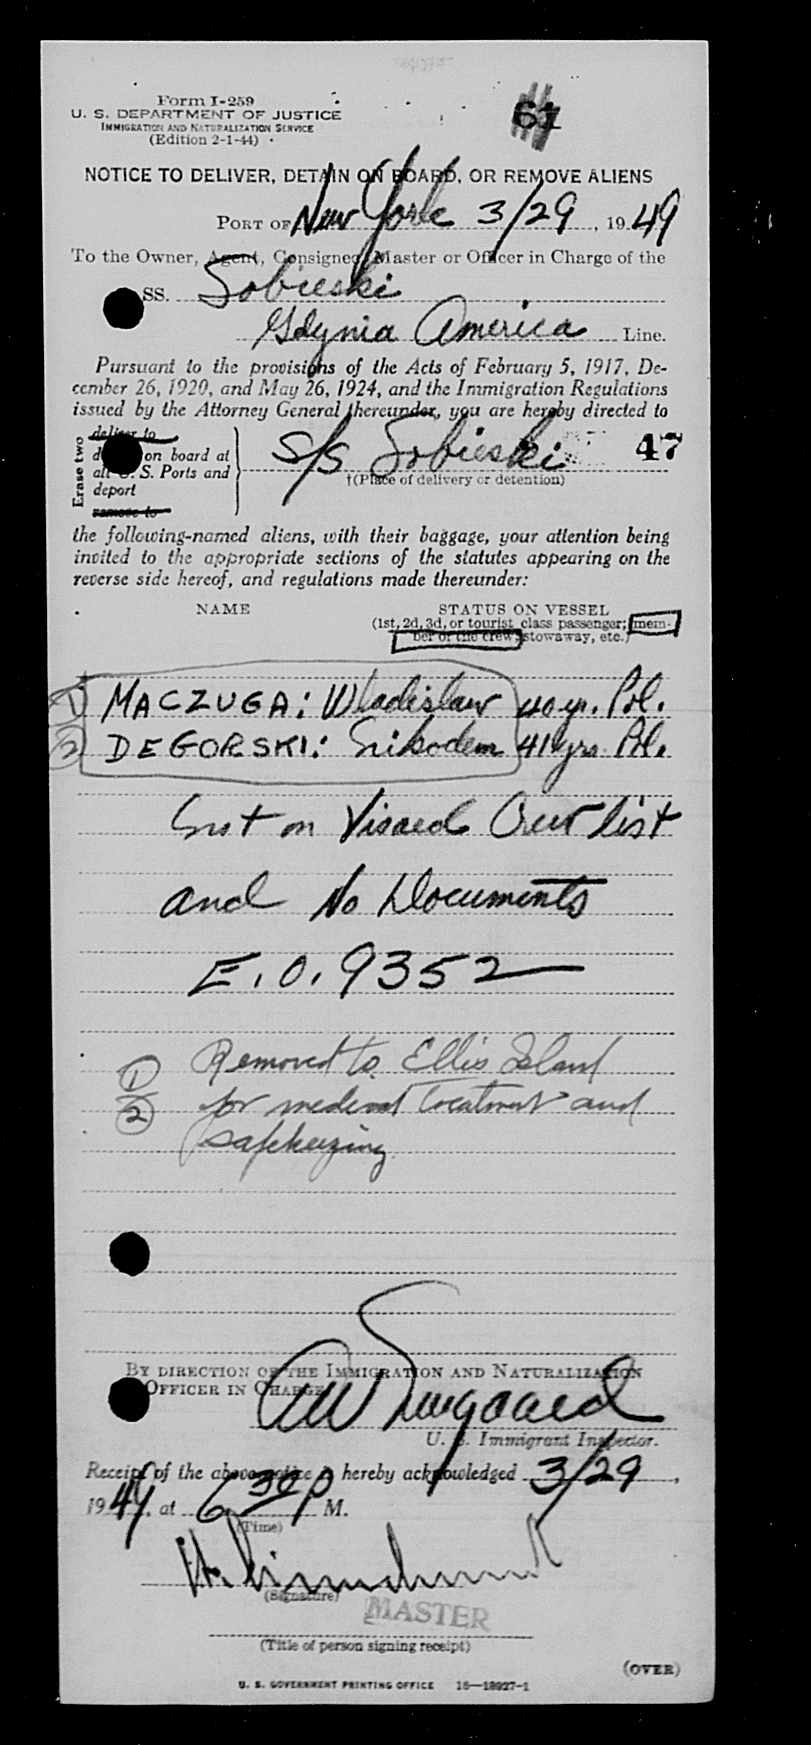 61
Form I-259
U. S. DEPARTMENT OF JUSTICE
IMMIGRATION AND NATURALIZATION SERVICE
(Edition 2-1-44)
NOTICE TO DELIVER, DETAIN ON BOARD, OR REMOVE ALIENS
PORT OF New York 3/29, 1949
To the Owner, Agent, Consignee, Master or Officer in Charge of the
SS. Sobieski
Gdynia America Line.
Pursuant to the provisions of the Acts of February 5, 1917, De-
cember 26, 1920, and May 26, 1924, and the Immigration Regulations
issued by the Attorney General thereunder, you are hereby directed to
Erase two
deliver to
on board at
all U. S. Ports and
deport
remove to
S/S Sobieski 47
†(Place of delivery or detention)
the following-named aliens, with their baggage, your attention being
invited to the appropriate sections of the statutes appearing on the
reverse side hereof, and regulations made thereunder:
NAME STATUS ON VESSEL
(1st, 2d, 3d, or tourist class passenger; mem-
ber of the crew; stowaway, etc.)
1 MACZUGA: Wladislaw 40 yr. Pol.
2 DEGORSKI: 41 yrs Pol.
Not on Visaed Crew list
and No Documents
E.O. 9352
1 Removed to Ellis Island
2 for medical treatment and
safekeeping
BY DIRECTION OF THE IMMIGRATION AND NATURALIZATION
OFFICER IN CHARGE
U. S. Immigrant Inspector.
Receipt of the above notice is hereby acknowledged 3/29,
1949, at 6 30 P M.
(Time)
(Signature)
MASTER
(Title of person signing receipt)
(OVER)
U. S. GOVERNMENT PRINTING OFFICE 16—18927-1